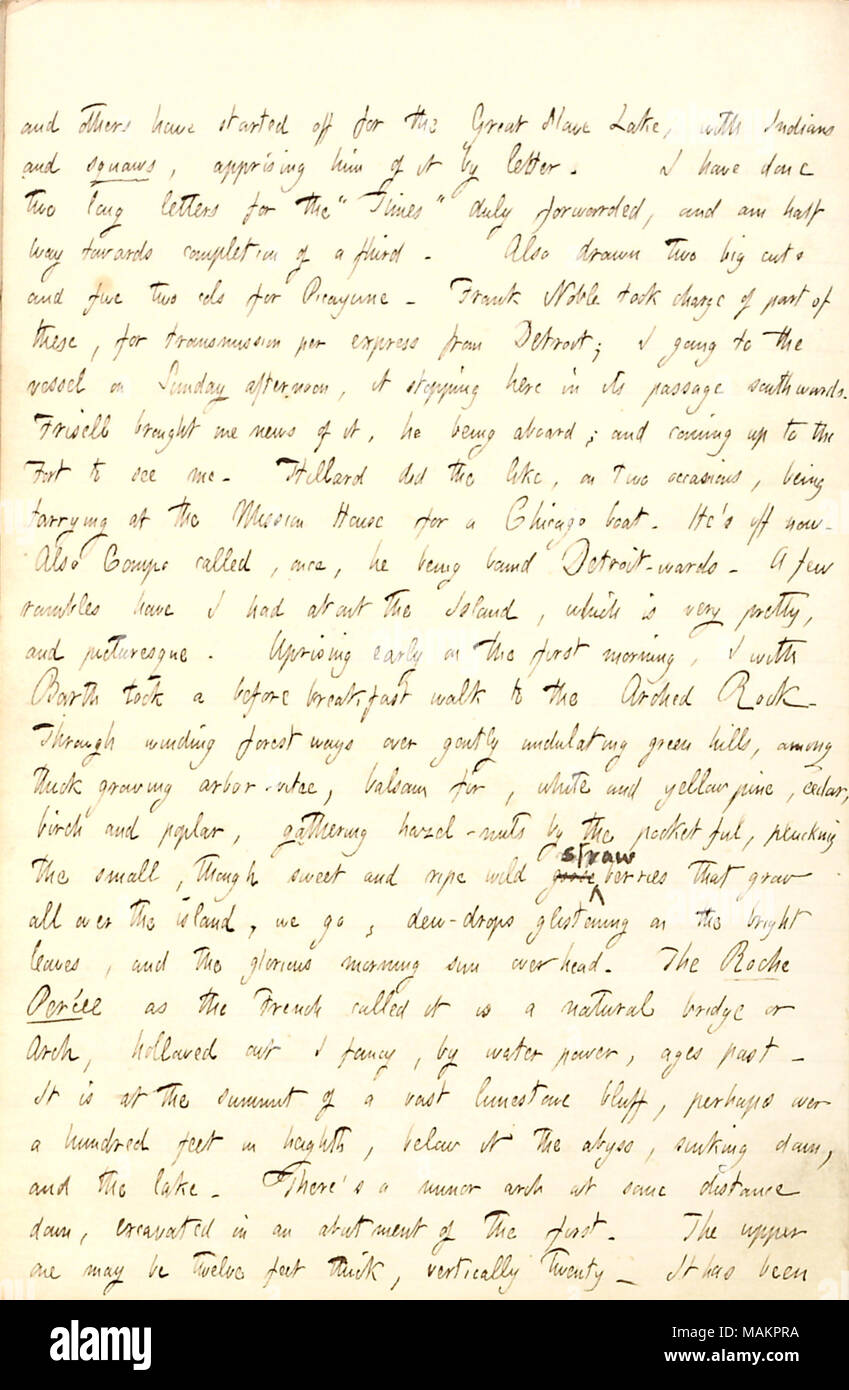 and others have started off for the Great Slave Lake, with Indians
and squaws, apprising him of it by letter. I have done
two long letters for the "Times" duly forwarded, and am half
way towards completion of a third. Also drawn two big cuts
and five two cols for Picayune. Frank Noble took charge of part of
these, for transmission per express from Detroit; I going to the
vessel on Sunday afternoon, it stopping here in its passage southwards.
Frisell brought me news of it, he being aboard, and coming up to the
Fort to see me. Hillard did the like, on two occasions, being
tarrying at the Mission House for a Chicago boat. He's off now.
Also Compo called, once, he being bound Detroit-wards. A few
rambles have I had about the Island, which is very pretty,
and picturesque. Uprising early on the first morning, I with
Barth took a before breakfast walk to the Arched Rock.
Through winding forest ways over gently undulating green hills, among
thick growing arbor-vitae, balsam fir, white and yellow pine, cedar,
birch and poplar, gathering hazel-nuts by the pocket ful, plucking
the small, though sweet and ripe wild goose straw berries that grow
all over the island, we go, dew-drops glistening on the bright
leaves, and the glorious morning sun overhead. The Roche
Percée as the French called it is a natural bridge or
Arch, hollowed out I fancy, by water power, ages past.
It is at the summit of a vast limestone bluff, perhaps over
a hundred feet in heighth, below it the abyss, sinking down,
and the lake. There's a minor arch at some distance
down, excavated in an abutment of the first. The upper
one may be twelve feet thick, vertically twenty. It has been
alamy
Image ID: MAKPRA
www.alamy.com